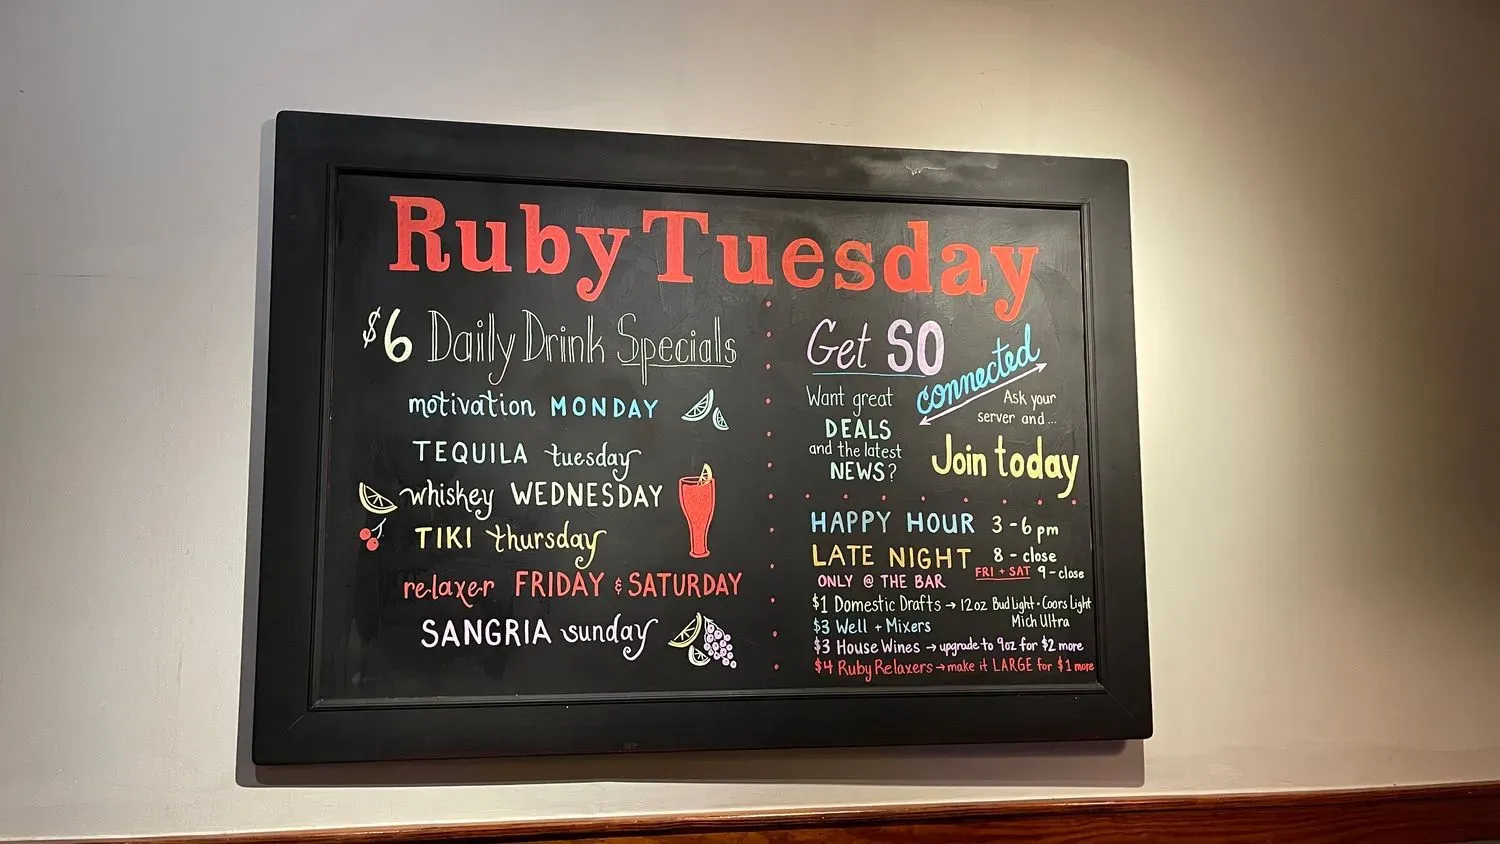 Ruby Tuesday
$6 Daily Drink Specials
motivation MONDAY
TEQUILA tuesday
whiskey WEDNESDAY
TIKI thursday
relaxer FRIDAY & SATURDAY
SANGRIA sunday
Get SO
connected
Want great
DEALS
and the latest
NEWS?
Ask your
server and...
Join today
HAPPY HOUR 3-6 pm
LATE NIGHT 8 - close
ONLY @ THE BAR FRI + SAT 9-close
$1 Domestic Drafts → 12oz Bud Light • Coors Light
Mich Ultra
$3 Well + Mixers
$3 House Wines → upgrade to 9oz for $2 more
$4 Ruby Relaxers → make it LARGE for $1 more